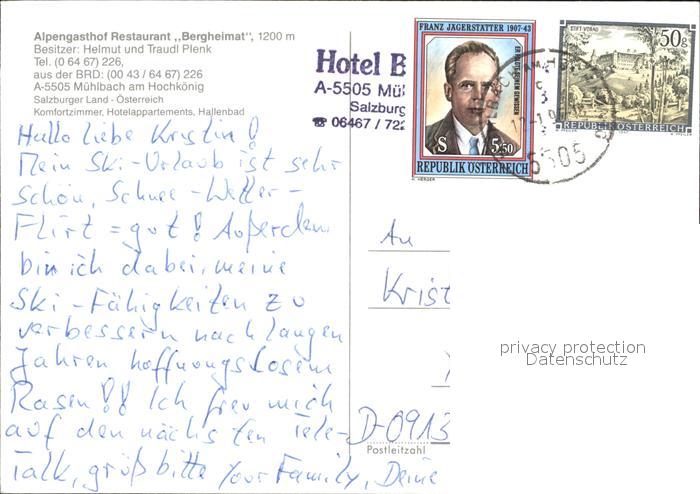 Alpengasthof Restaurant „Bergheimat“, 1200 m
Besitzer: Helmut und Traudl Plenk
Tel. (0 64 67) 226,
aus der BRD: (00 43 / 64 67) 226
A-5505 Mühlbach am Hochkönig
Salzburger Land - Österreich
Komfortzimmer, Hotelappartements, Hallenbad
Hotel B
A-5505 Mühl
Salzburg
☎ 06467 / 722
FRANZ JÄGERSTÄTTER 1907-43
S 5.50
REPUBLIK ÖSTERREICH
STIFT VORAU
50g
REPUBLIK ÖSTERREICH
5505
Hallo liebe Kristin!
Mein Ski-Urlaub ist sehr
schön, Schnee-Wetter-
Flirt = gut! Außerdem
bin ich dabei, meine
Ski-Fähigkeiten zu
verbessern nach langen
Jahren hoffnungslosem
Rasen!! Ich freu mich
auf den nächsten Tele-
Talk, grüß bitte your Family, Deine
An
Krist
D-0913
Postleitzahl
privacy protection
Datenschutz